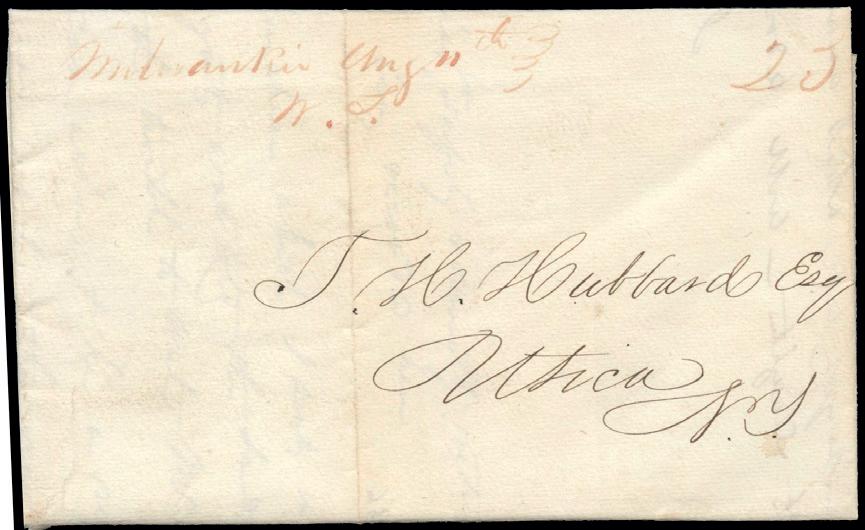 Milwaukie Aug 11th 25
W. T.
T. H. Hubbard Esq
Utica
N.Y